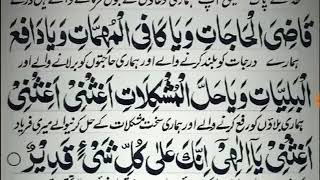 قَاضِیَ الْحَاجَاتِ وَیَا کَافِیَ الْمُهِمَّاتِ وَیَا دَافِعَ
ہمارے درجات کو بلند کرنے والے اور ہماری حاجتوں کو برلانے والے اور
الْبَلِیَّاتِ وَیَا حَلَّ الْمُشْکِلَاتِ اَغِثْنِیْ اَغِثْنِیْ
ہماری بلاؤں کو رفع کرنے والے اور ہماری سخت مشکلات کے حل کرنیوالے میری فریاد
اَغِثْنِیْ یَا اِلٰهِیْ اِنَّكَ عَلٰی کُلِّ شَیْءٍ قَدِیْرٌ